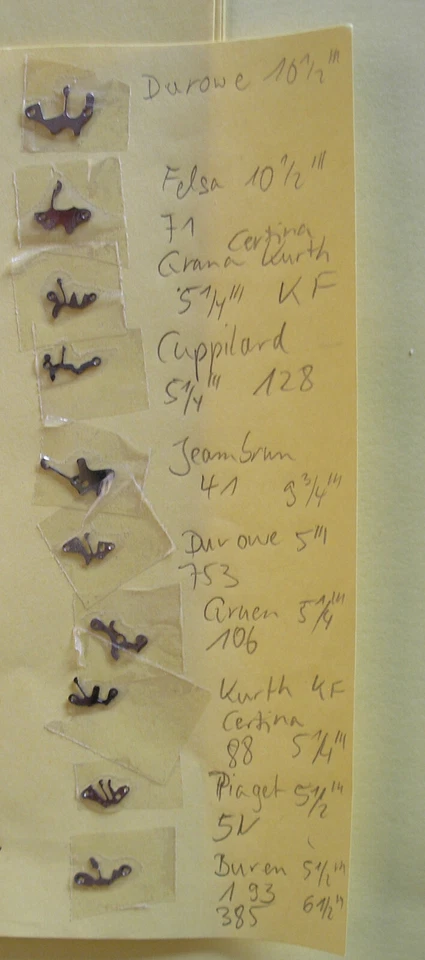 Durowe 10 1/2'''
Felsa 10 1/2'''
71
Certina
Grana Kurth
5 1/4''' KF
Cuppilard
5 1/4''' 128
Jeambrun
41 9 3/4'''
Durowe 5'''
753
Gruen 5 1/4'''
106
Kurth KF
Certina
88 5 1/4'''
Piaget 5 1/2'''
5N
Buren 5 1/2'''
193
385 6 1/2'''